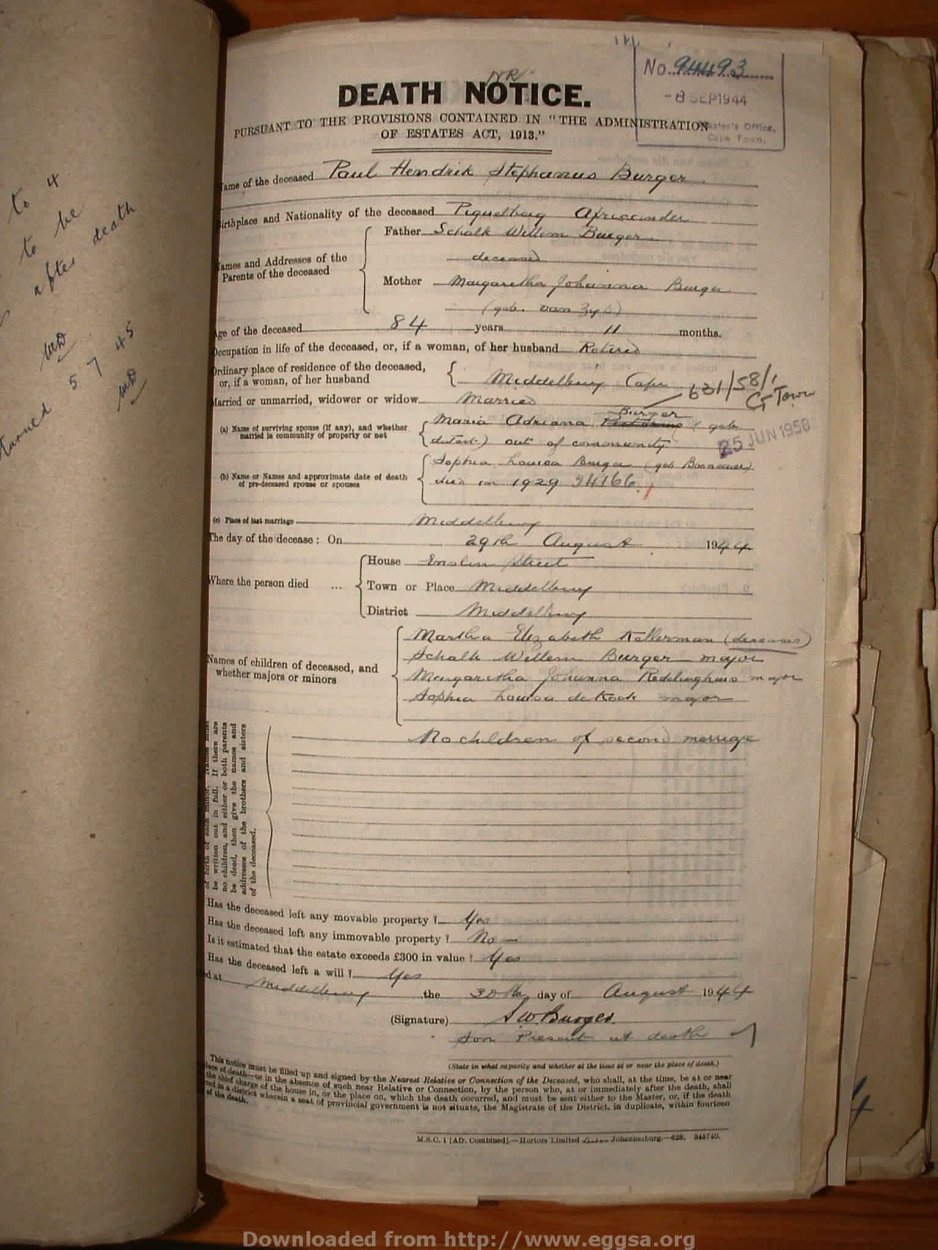 to 4
to be
after death
5 7 45
NR
No. 94493
- 8 SEP 1944
Master's Office,
Cape Town.
DEATH NOTICE.
PURSUANT TO THE PROVISIONS CONTAINED IN "THE ADMINISTRATION
OF ESTATES ACT, 1913."
ame of the deceased Paul Hendrik Stephanus Burger
irthplace and Nationality of the deceased Piquetberg Afrikaander
ames and Addresses of the
Parents of the deceased
Father Schalk Willem Burger
deceased
Mother Margaretha Johanna Burger
(geb. van Zyl)
ge of the deceased 84 years 11 months.
ccupation in life of the deceased, or, if a woman, of her husband Retired
rdinary place of residence of the deceased,
or, if a woman, of her husband
Middelburg Cape
631/58/1
C. Town
25 JUN 1958
arried or unmarried, widower or widow Married
(a) Name of surviving spouse (if any), and whether
married in community of property or not
Burger
Maria Adriana (geb
out of community
(b) Name or Names and approximate date of death
of pre-deceased spouse or spouses
Sophia Louisa Burger (geb
died in 1929 24166
(c) Place of last marriage Middelburg
he day of the decease: On 29th August 1944
Where the person died ...
House Enslin Street
Town or Place Middelburg
District Middelburg
Names of children of deceased, and
whether majors or minors
Martha Elizabeth Kellerman (deceased)
Schalk Willem Burger major
Margaretha Johanna Reddinghuis major
Sophia Louisa de Kock major
No children of second marriage
of birth of each minor. Names must
be written out in full. If there are
no children, and either or both parents
be dead, then give the names and
addresses of the brothers and sisters
of the deceased.
Has the deceased left any movable property? Yes
Has the deceased left any immovable property? No
Is it estimated that the estate exceeds £300 in value? Yes
Has the deceased left a will? Yes
d at Middelburg the 30th day of August 1944
(Signature) S W Burger
Son Present at death
(State in what capacity and whether at the time at or near the place of death.)
This notice must be filled up and signed by the Nearest Relative or Connection of the Deceased, who shall, at the time, be at or near
lace of death—or in the absence of such near Relative or Connection, by the person who, at or immediately after the death, shall
the chief charge of the house in, or the place on, which the death occurred, and must be sent either to the Master, or, if the death
ed in a district wherein a seat of provincial government is not situate, the Magistrate of the District, in duplicate, within fourteen
of the death.
M.S.C. 1 [Afr. Combined].—Hortors Limited Johannesburg.—628. 343740.
Downloaded from http://www.eggsa.org